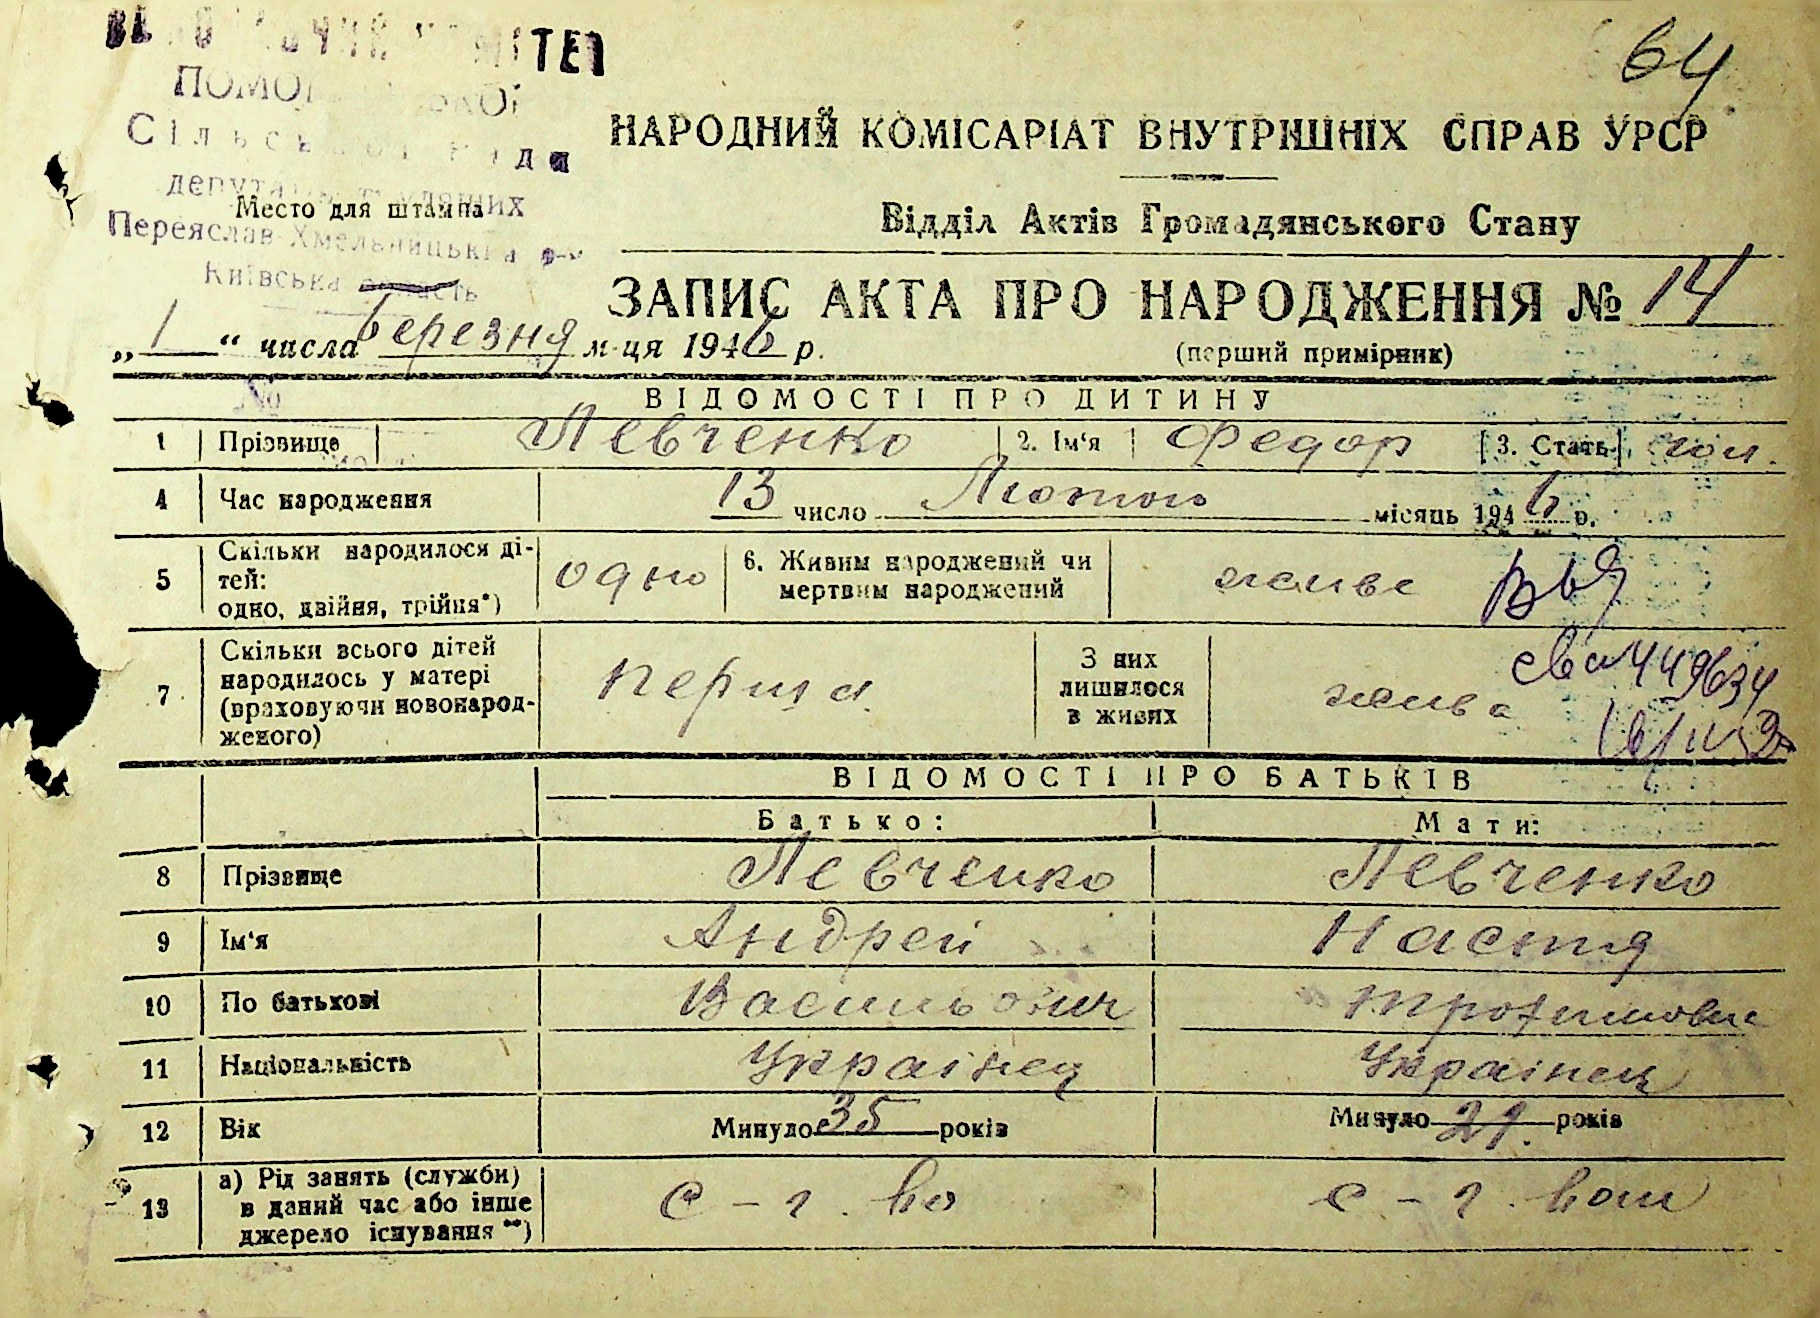 64
НАРОДНИЙ КОМІСАРІАТ ВНУТРІШНІХ СПРАВ УРСР
Місто для штампа
Переяслав-Хмельницьк
Київська область
Відділ Актів Громадянського Стану
ЗАПИС АКТА ПРО НАРОДЖЕННЯ № 14
„ 1 “ числа березня м-ця 1946 р.
(перший примірник)
ВІДОМОСТІ ПРО ДИТИНУ
1 Прізвище Левченко 2. Ім‘я Федор 3. Стать чол.
4 Час народження 13 число Лютого місяць 1946 р.
5 Скільки народилося ді-
тей:
одно, двійня, трійня*) одно 6. Живим народжений чи
мертвим народжений живе
7 Скільки всього дітей
народилось у матері
(враховуючи новонарод-
женого) перша З них
лишилося
в живих жива
ВІДОМОСТІ ПРО БАТЬКІВ
Батько: Мати:
8 Прізвище Левченко Левченко
9 Ім‘я Андрей Настя
10 По батькові Васильович Трофимовна
11 Національність Українец Українец
12 Вік Минуло 35 років Минуло 29. років
13 а) Рід занять (служби)
в даний час або інше
джерело існування **) с-г. во с-г. вом